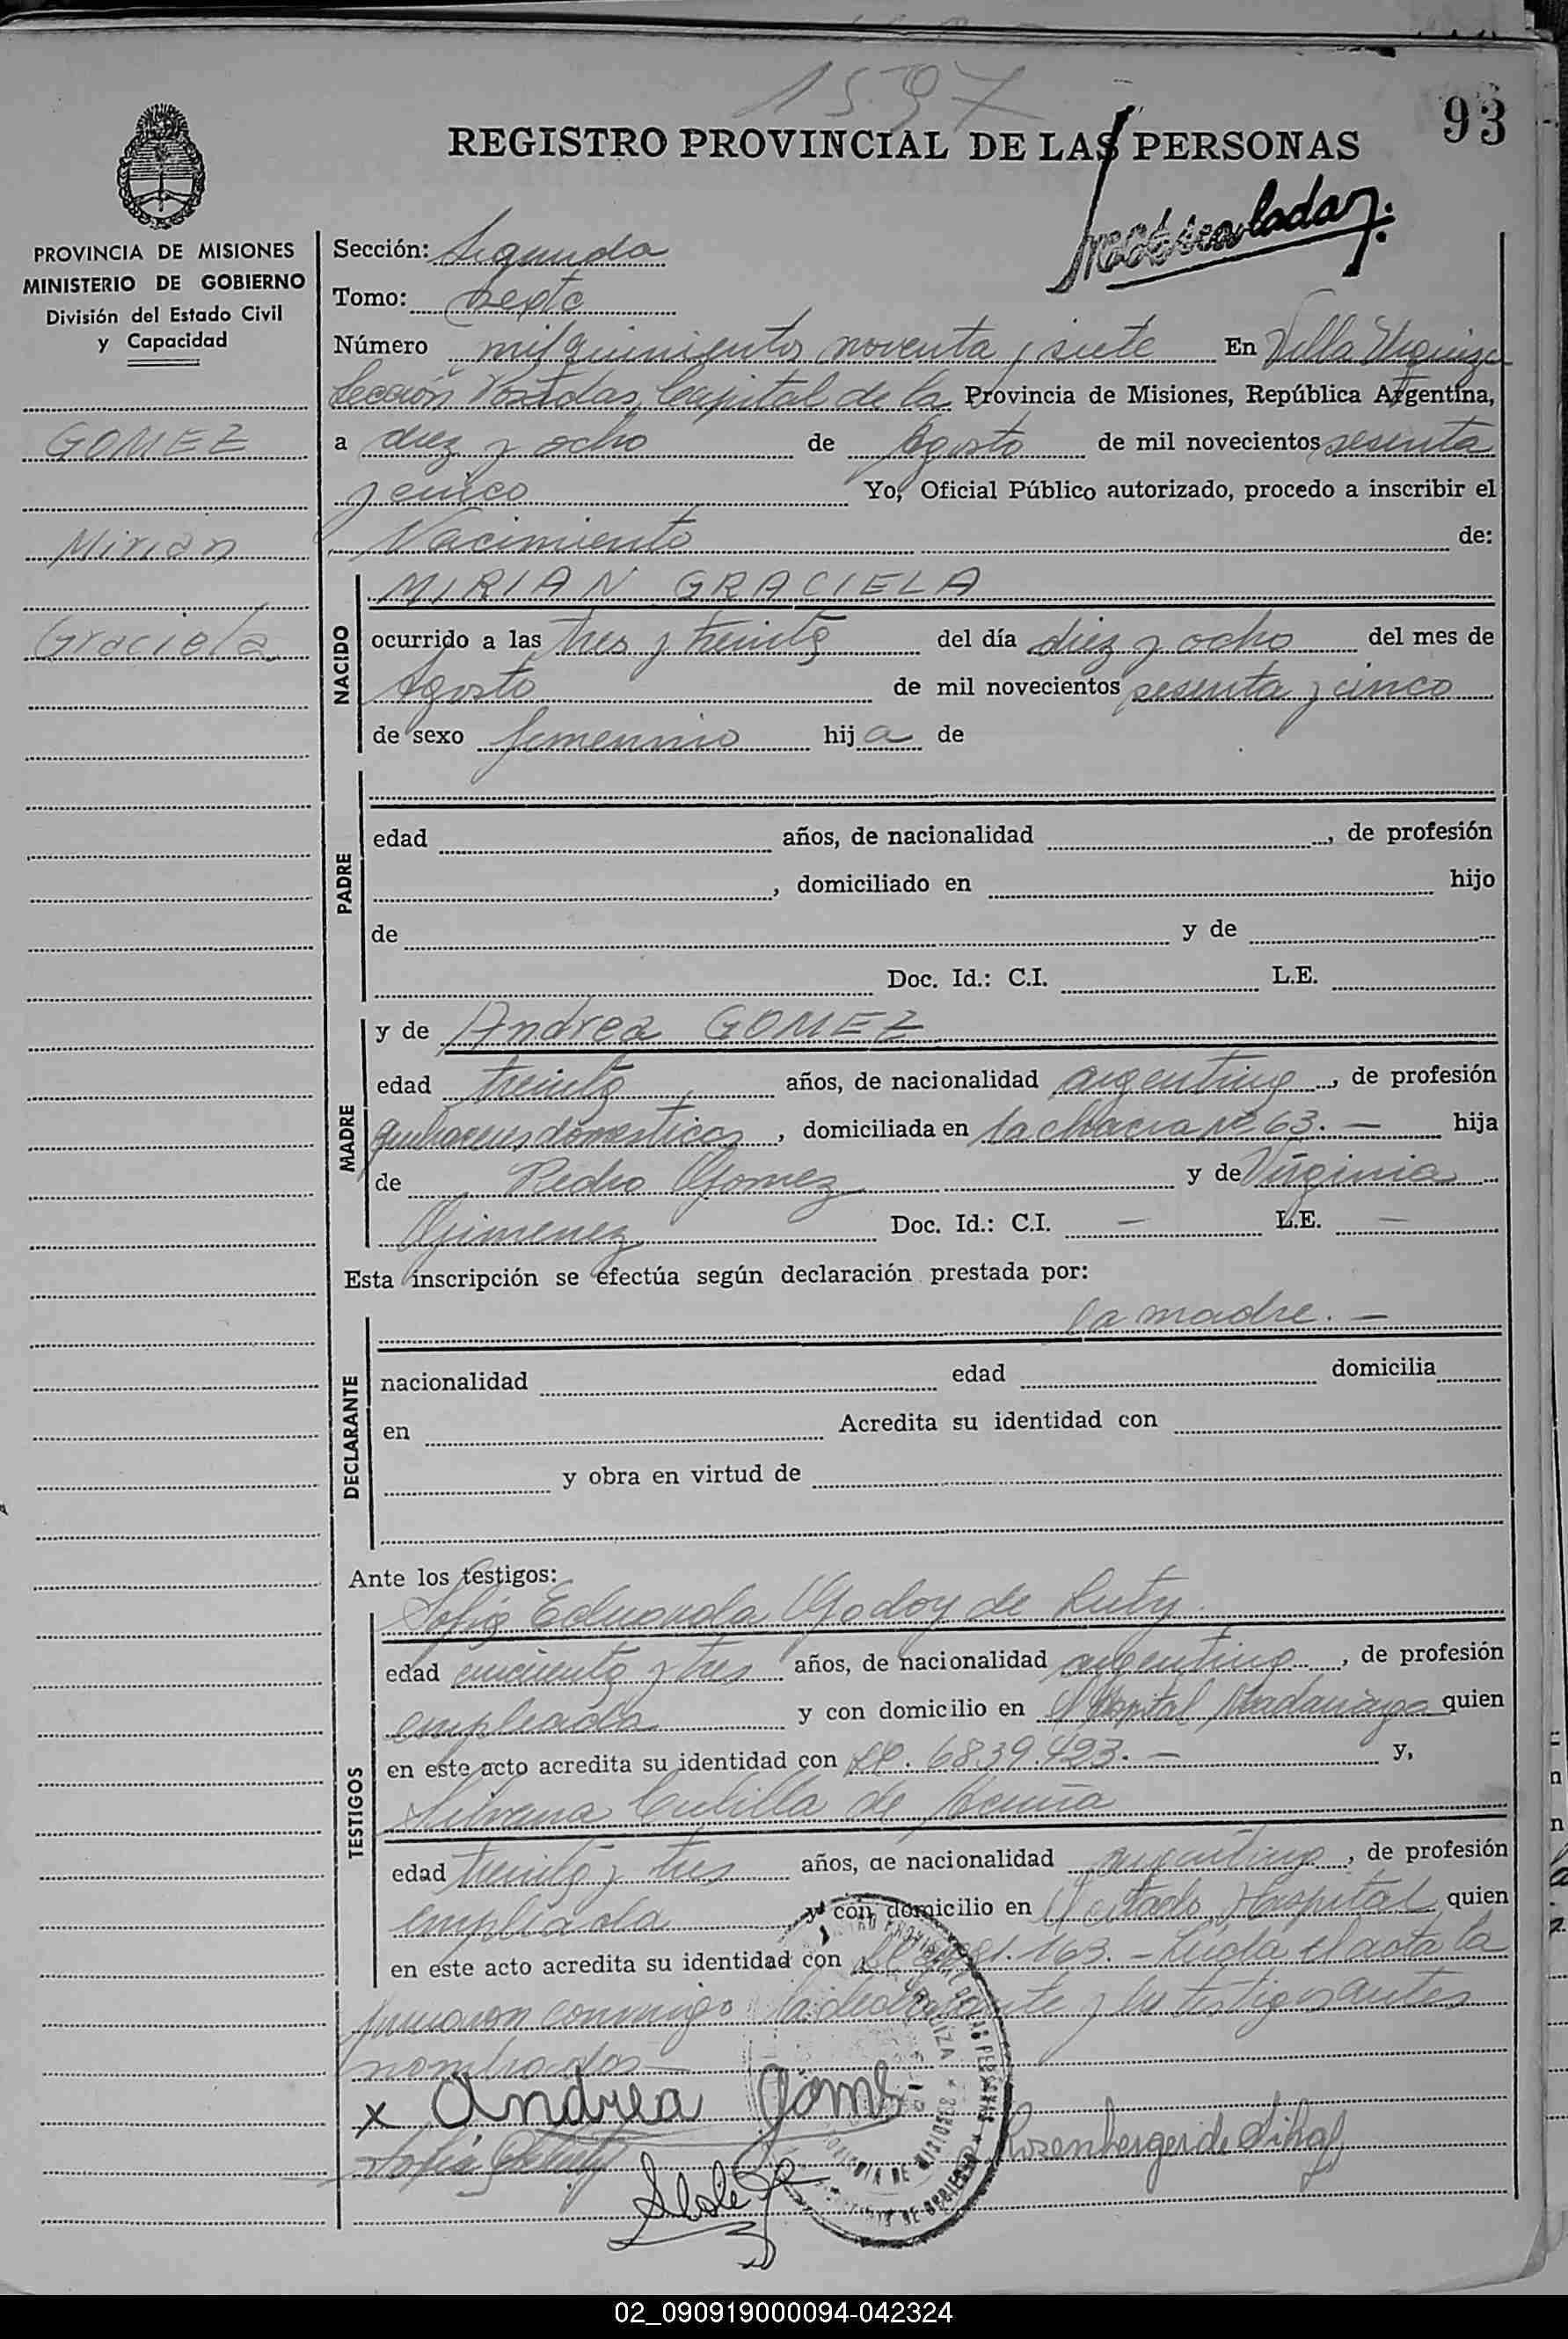 1597
93
REGISTRO PROVINCIAL DE LAS PERSONAS
PROVINCIA DE MISIONES
MINISTERIO DE GOBIERNO
División del Estado Civil
y Capacidad
GOMEZ
Mirian
Graciela
Sección: Segunda
Tomo: Sexto
Número mil quinientos noventa y siete En Villa Urquiza
Sección Posadas, Capital de la Provincia de Misiones, República Argentina,
a diez y ocho de Agosto de mil novecientos sesenta
y cinco Yo, Oficial Público autorizado, procedo a inscribir el
Nacimiento de:
NACIDO
MIRIAN GRACIELA
ocurrido a las tres y treinta del día diez y ocho del mes de
Agosto de mil novecientos sesenta y cinco
de sexo femenino hija de
PADRE
edad años, de nacionalidad , de profesión
, domiciliado en hijo
de y de
Doc. Id.: C.I. L.E.
MADRE
y de Andrea GOMEZ
edad treinta años, de nacionalidad argentina, de profesión
quehaceres domesticos, domiciliada en la chacra Nº 63. — hija
de Pedro Gomez y de Virginia
Gimenez Doc. Id.: C.I. — L.E. —
Esta inscripción se efectúa según declaración prestada por:
la madre. —
DECLARANTE
nacionalidad edad domicilia
en Acredita su identidad con
y obra en virtud de
Ante los testigos:
TESTIGOS
Sofia Eduarda Godoy de Luty
edad cincuenta y tres años, de nacionalidad argentina, de profesión
empleada y con domicilio en el Hospital Madariaga quien
en este acto acredita su identidad con 6839.423. — y,
de Acuña
edad treinta y tres años, de nacionalidad argentina, de profesión
empleada y con domicilio en el citado Hospital quien
en este acto acredita su identidad con 163. — Leida el acta la
firmaron conmigo la declarante y los testigos antes
nombrados —
x Andrea Gome
Sofia
Rozenberger de
02_090919000094-042324